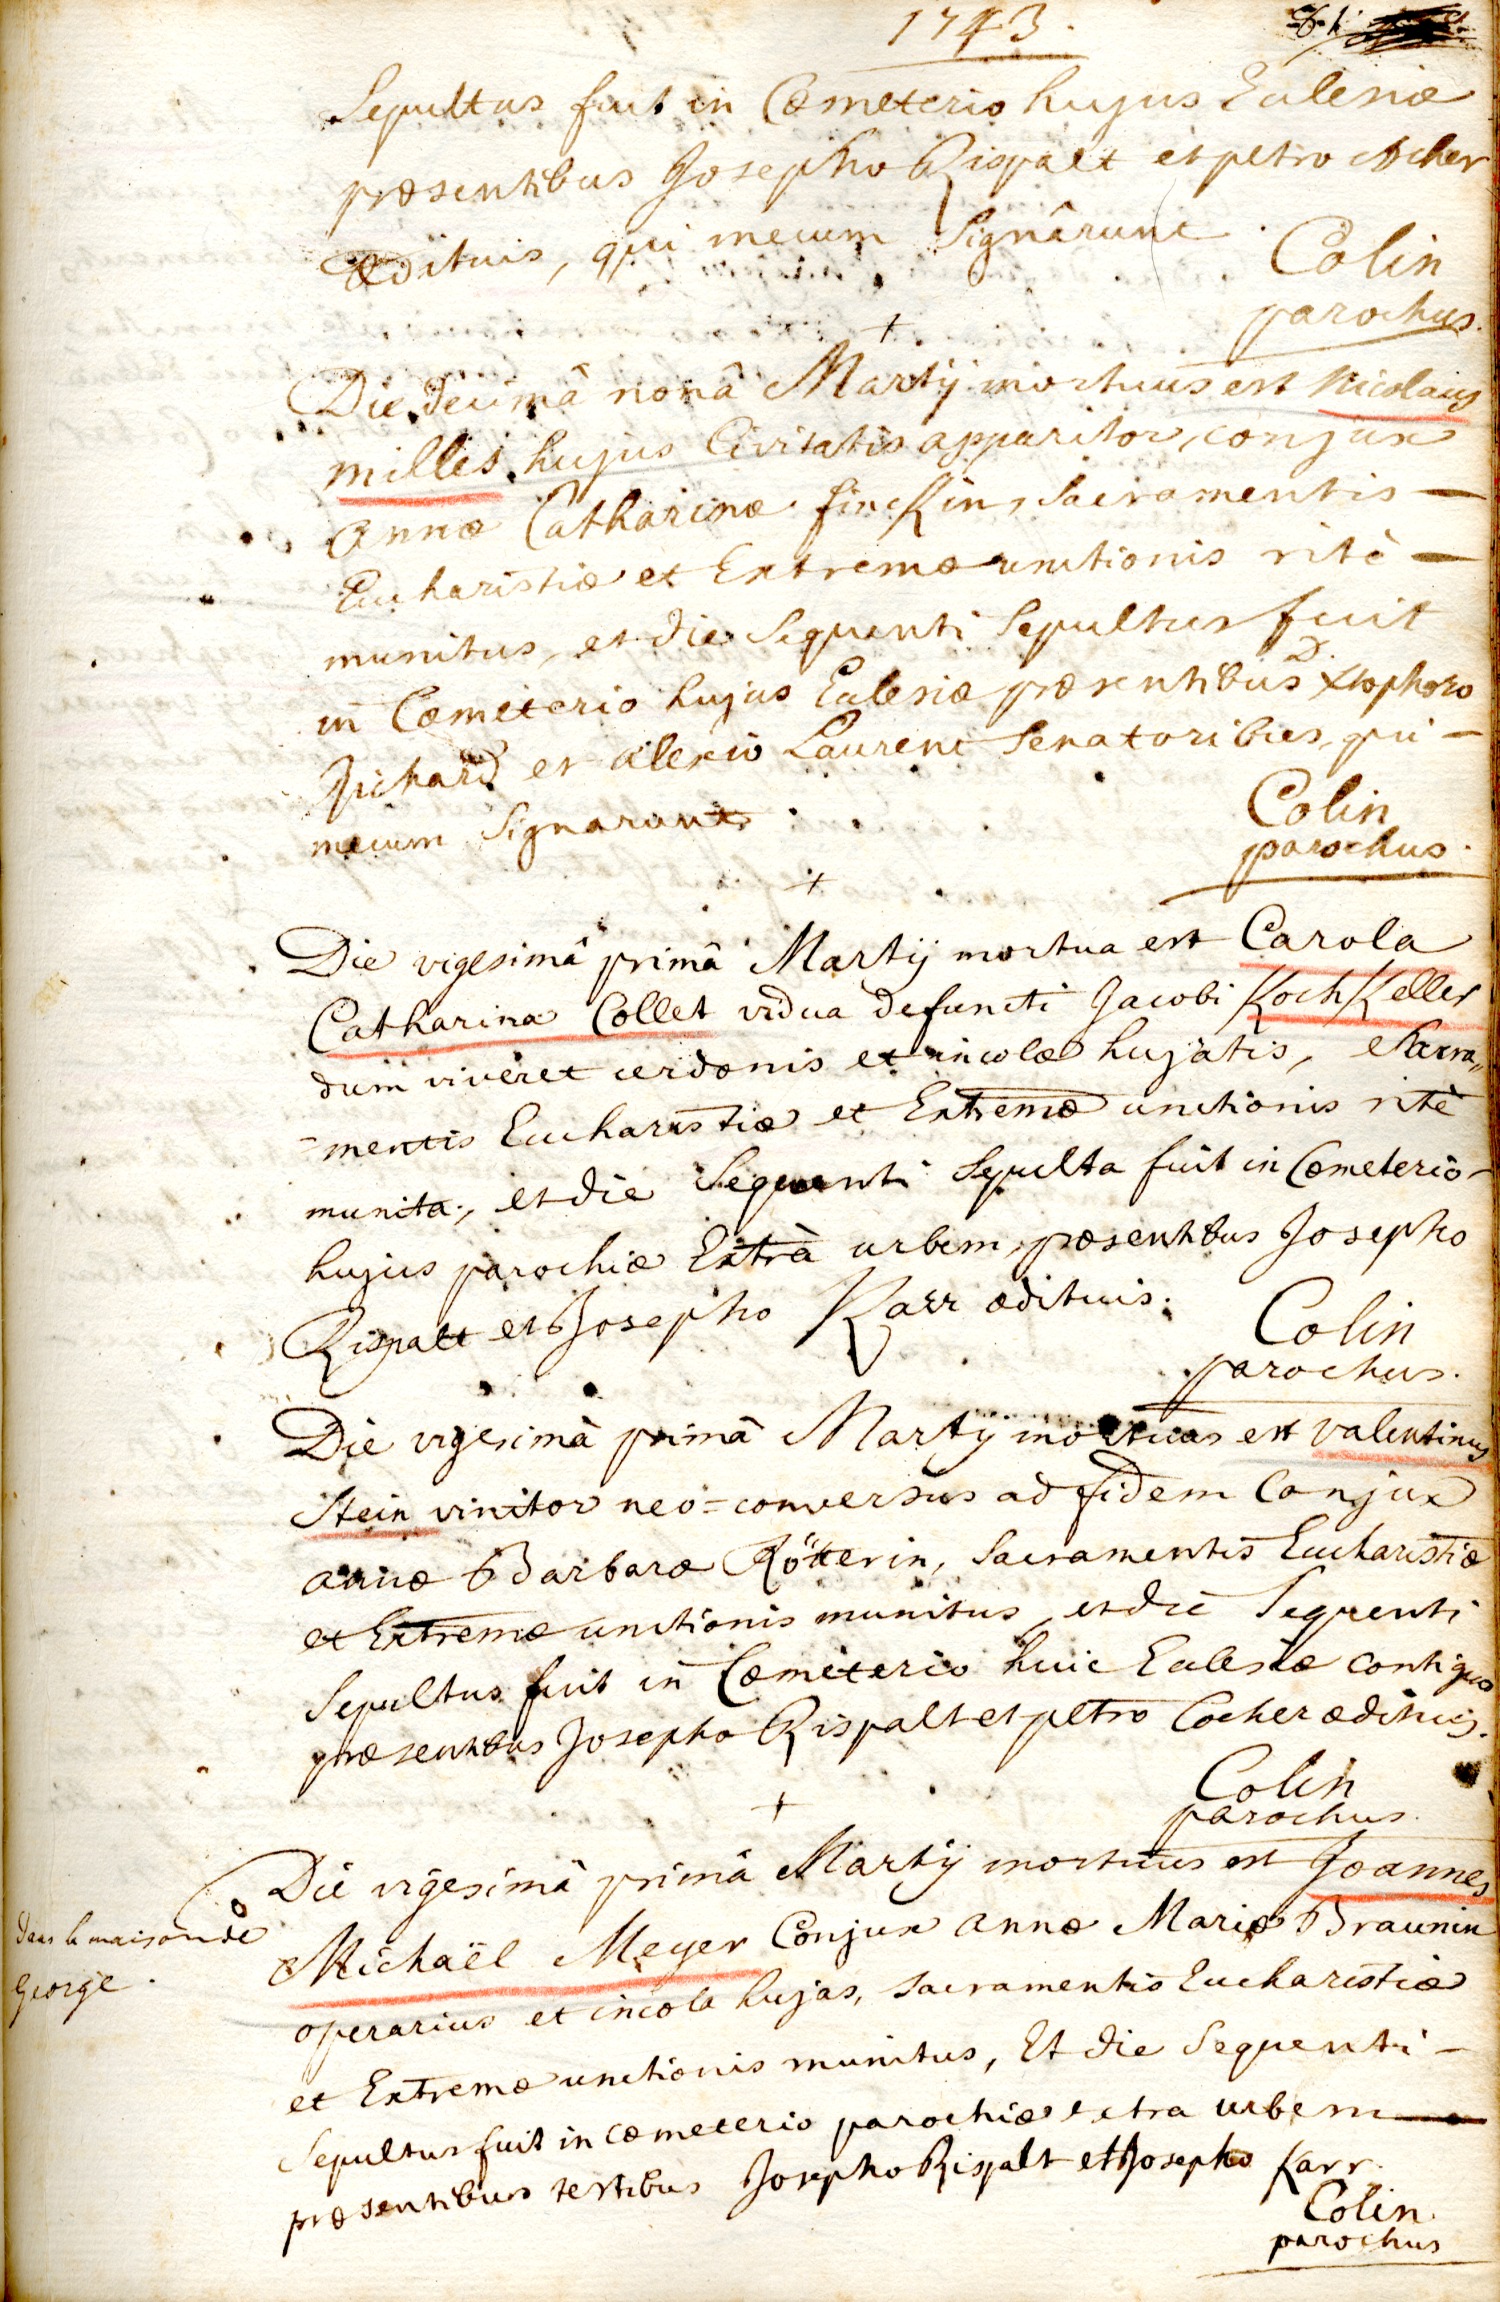 1743.
Sepultus fuit in Cœmeterio hujus Ecclesiæ
præsentibus Josepho Rispalt et petro Acher
ædituis, qui mecum signârunt.
Colin
parochus.
+
Die decimâ nonâ Martij mortuus est Nicolaus
milles hujus Civitatis apparitor, conjux
annæ Catharinæ finckin, Sacramentis —
Eucharistiæ et Extremæ unctionis ritè —
munitus, et die Sequenti Sepultus fuit
in Cœmeterio hujus Ecclesiæ præsentibus D. Xtophoro
Richard et alexio Laurent Senatoribus, qui —
mecum Signarunt.
Colin
parochus.
+
Die vigesimâ primâ Martij mortua est Carola
Catharina Collet vidua defuncti Jacobi Koch Keller
dum viveret cerdonis et incolæ hujatis, Sacra„
=mentis Eucharistiæ et Extremæ unctionis ritè
munita, et die Sequenti Sepulta fuit in Cœmeterio
hujus parochiæ Extrà urbem, præsentibus Josepho
Rispalt et Josepho Karr ædituis.
Colin
parochus.
Die vigesimâ primâ Martij mortuus est Valentinus
Stein vinitor neo=conversus ad fidem Conjux
annæ Barbaræ Rötterin, Sacramentis Eucharistiæ
et Extremæ unctionis munitus, et die Sequenti
Sepultus fuit in Cœmeterio huic Ecclesiæ contiguo
præsentibus Josepho Rispalt et petro Cocher ædituis.
Colin
parochus.
+
Die vigesimâ primâ Martij mortuus est Joannes
Michaël Meyer Conjux annæ Mariæ Braunin
dans la maison de
George.
operarius et incola hujas, Sacramentis Eucharistiæ
et Extremæ unctionis munitus, Et die Sequenti —
Sepultus fuit in cœmeterio parochiæ extra urbem —
præsentibus testibus Josepho Rispalt et Josepho Karr.
Colin.
parochus